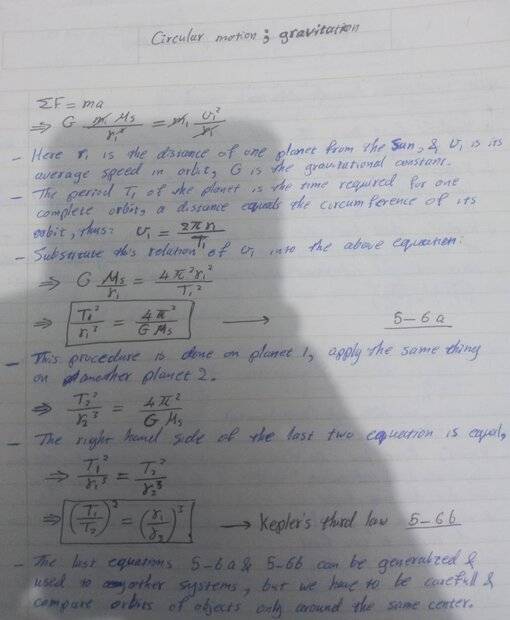 Circular motion; gravitation
ΣF = ma
⇒ G m₁ Ms / r₁² = m₁ v₁² / r₁
- Here r₁ is the distance of one planet from the Sun, & v₁ is its
average speed in orbit, G is the gravitational constant.
- The period T₁ of the planet is the time required for one
complete orbit, a distance equals the circumference of its
orbit, thus: v₁ = 2πr₁ / T₁
- Substitute this relation of v₁ into the above equation:
⇒ G Ms / r₁ = 4π²r₁² / T₁²
⇒ T₁² / r₁³ = 4π² / G Ms → 5-6a
- This procedure is done on planet 1, apply the same thing
on another planet 2.
⇒ T₂² / r₂³ = 4π² / G Ms
- The right hand side of the last two equation is equal,
⇒ T₁² / r₁³ = T₂² / r₂³
⇒ (T₁ / T₂)² = (r₁ / r₂)³ → Kepler's third law 5-6b
- The last equations 5-6a & 5-6b can be generalized &
used to other systems, but we have to be carefull &
compare orbits of objects only around the same center.